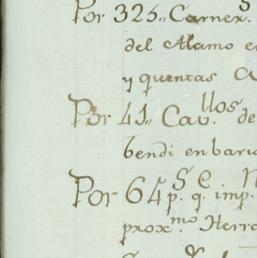 Por 325,, Carner.s
del Alamo en
y quentas
Por 41,, Cav.llos de
bendi en bario
Por 64 p.s q.e imp.
prox.mo Herra